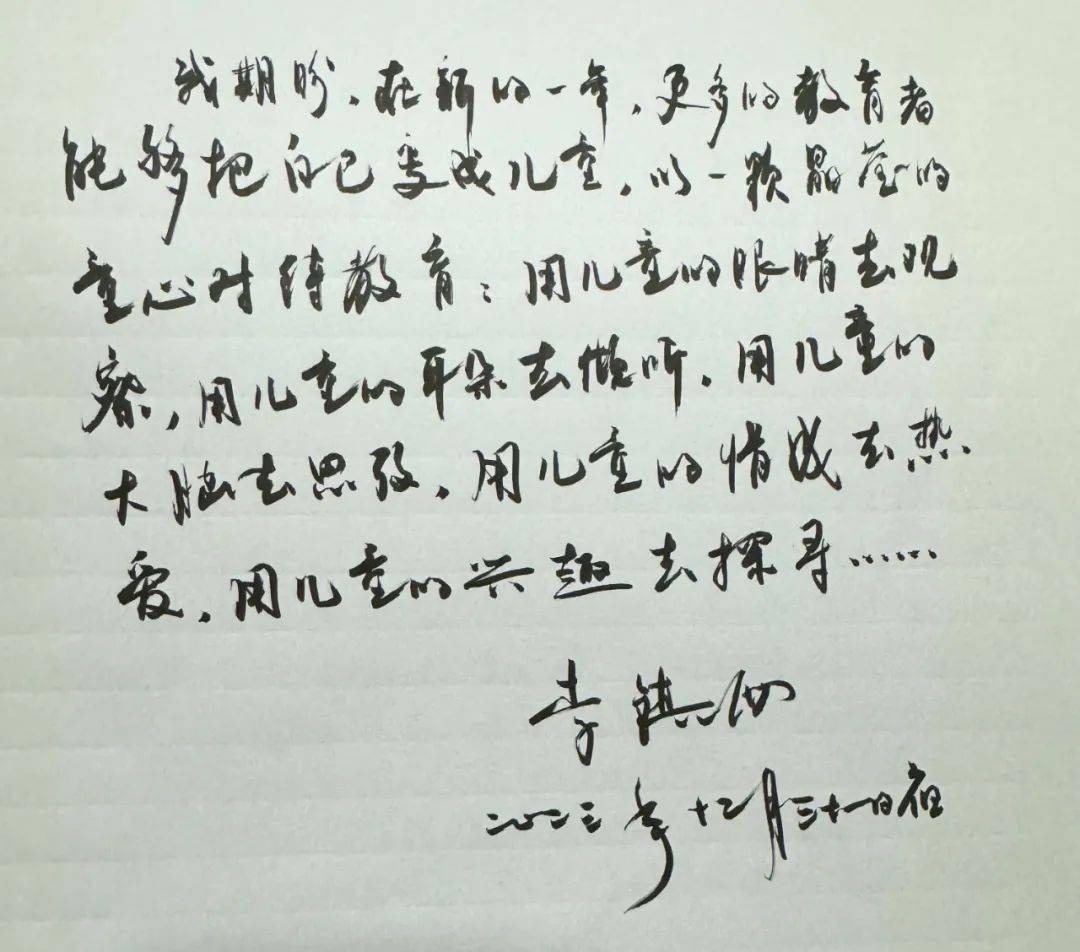 我期盼,在新的一年,更多的教育者
能够把自己变成儿童,以一颗晶莹的
童心对待教育:用儿童的眼睛去观
察,用儿童的耳朵去倾听,用儿童的
大脑去思考,用儿童的情感去热
爱,用儿童的兴趣去探寻……
李镇西
二〇二三年十二月三十一日夜